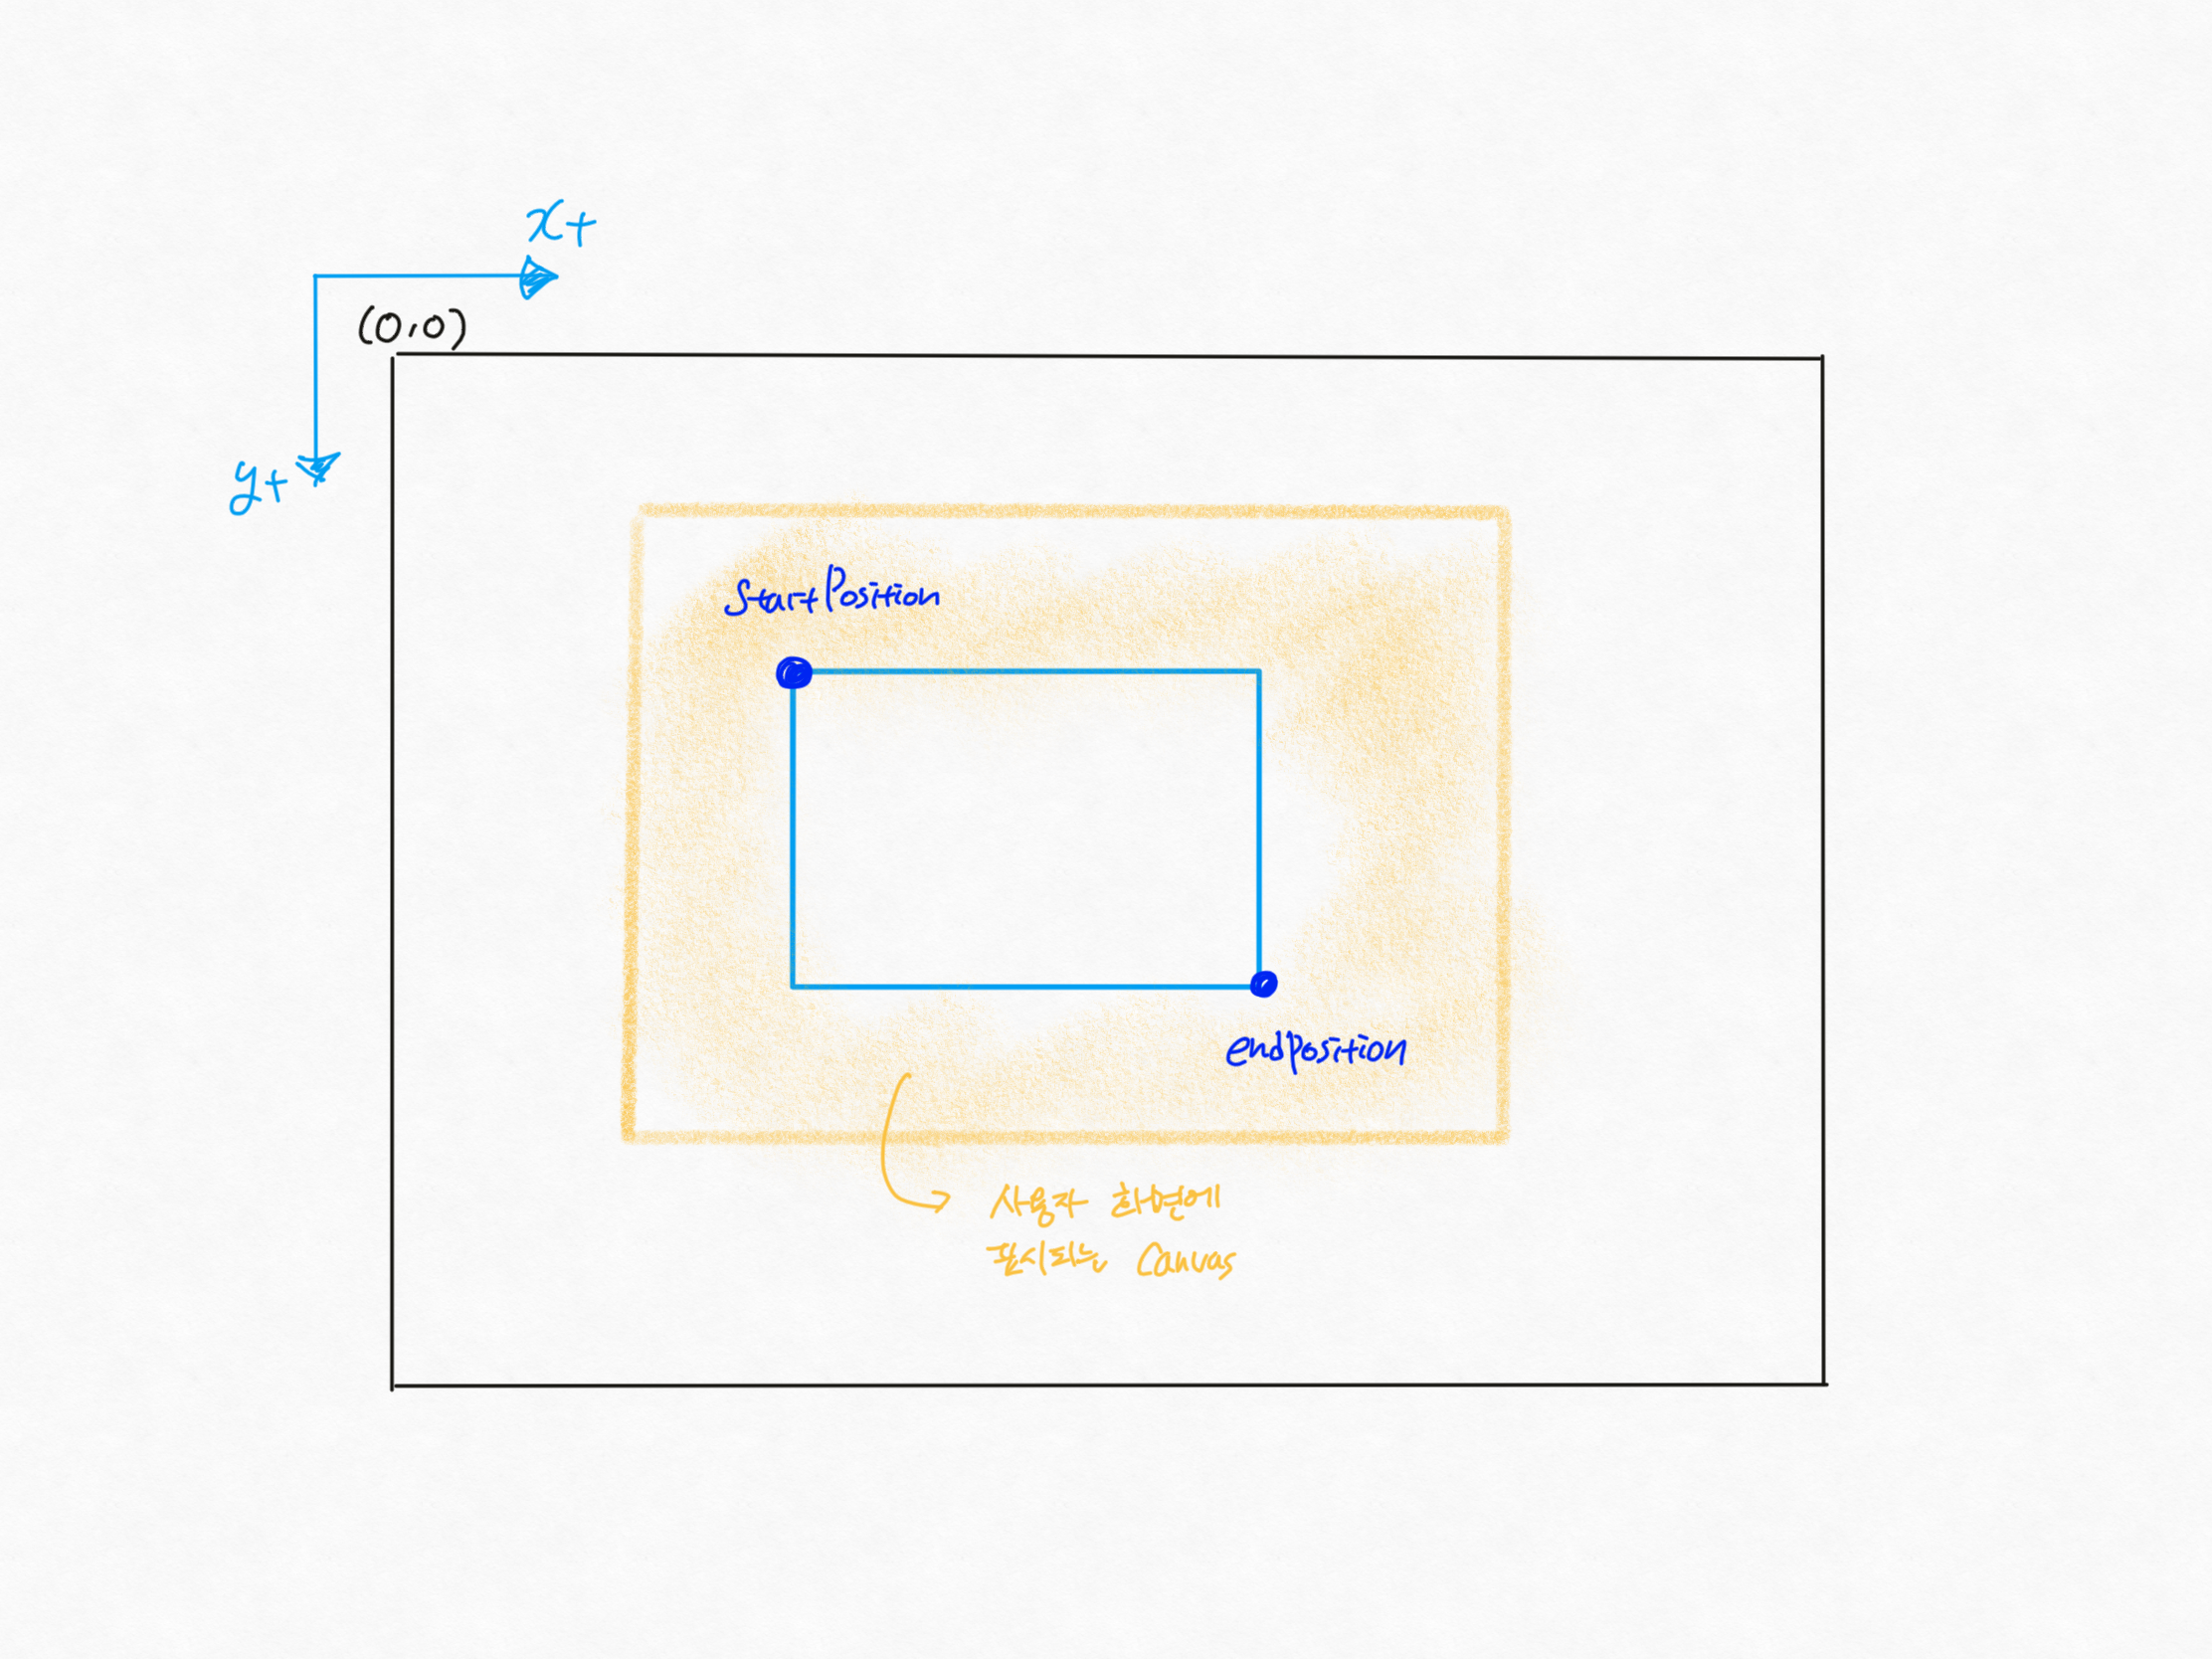 x+
(0,0)
y+
StartPosition
endposition
사용자 화면에
표시되는 Canvas